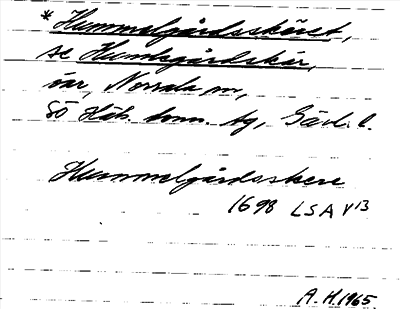 * Hummelgårdsskäret,
se Humlegårdskär,
öar, Norrala sn,
Sö Häls. dom. tg, Gävl. l.
Hummelgårdsskere
1698 LSA V 13
A. H. 1965.